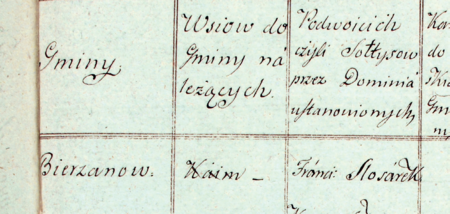 Gminy
Wsiow do
Gminy na
leżących.
Podwoicich
czyli Sołtysow
przez Dominia
ustanowionych,
do
Bierzanow.
Kaim –
Franci: Slosarek